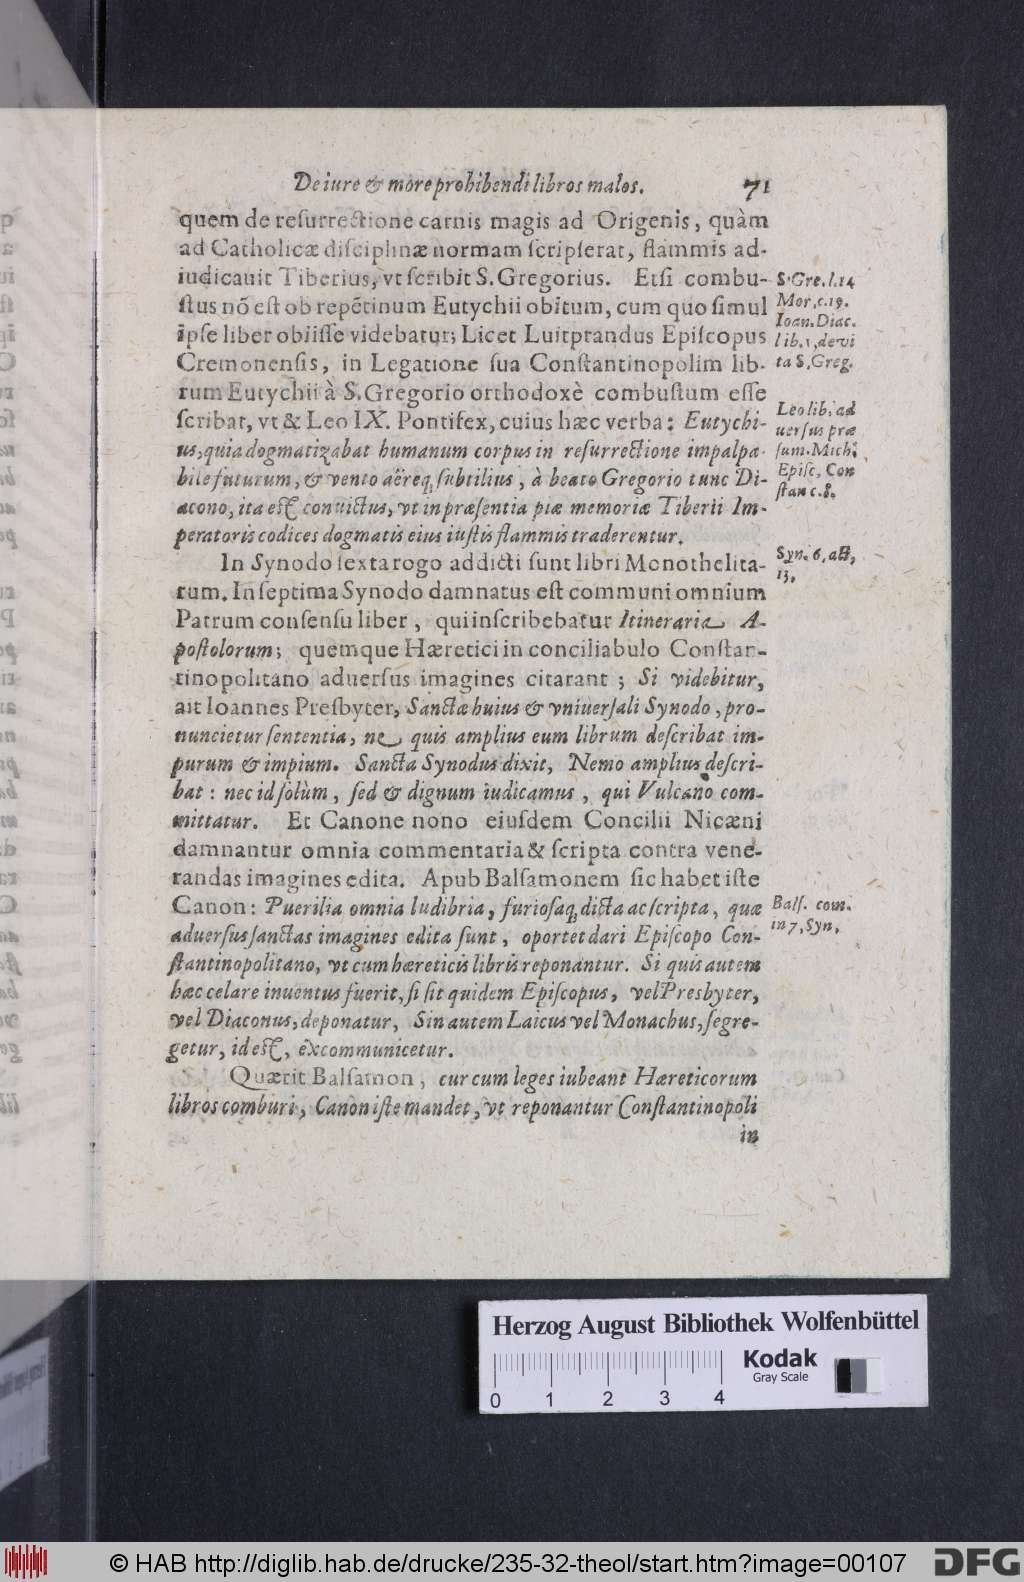 De iure & more prohibendi libros malos. 71
quem de resurrectione carnis magis ad Origenis, quàm
ad Catholicæ disciplinæ normam scripserat, flammis ad-
iudicauit Tiberius, vt scribit S. Gregorius. Etsi combu-
stus nō est ob repētinum Eutychii obitum, cum quo simul
ipse liber obiisse videbatur; Licet Luitprandus Episcopus
Cremonensis, in Legatione sua Constantinopolim lib-
rum Eutychii à S. Gregorio orthodoxè combustum esse
scribat, vt & Leo IX. Pontifex, cuius hæc verba: Eutychi-
us, quia dogmatizabat humanum corpus in resurrectione impalpa-
bile futurum, & vento aëreq; subtilius, à beato Gregorio tunc Di-
acono, ita est conuictus, vt in præsentia piæ memoriæ Tiberii Im-
peratoris codices dogmatis eius iustis flammis traderentur.
In Synodo sexta rogo addicti sunt libri Monothelita-
rum. In septima Synodo damnatus est communi omnium
Patrum consensu liber, qui inscribebatur Itineraria A-
postolorum; quemque Hæretici in conciliabulo Constan-
tinopolitano aduersus imagines citarant; Si videbitur,
ait Ioannes Presbyter, Sanctæ huius & vniuersali Synodo, pro-
nuncietur sententia, ne quis amplius eum librum describat im-
purum & impium. Sancta Synodus dixit, Nemo amplius descri-
bat: nec id solùm, sed & dignum iudicamus, qui Vulcano com-
mittatur. Et Canone nono eiusdem Concilii Nicæni
damnantur omnia commentaria & scripta contra vene-
randas imagines edita. Apub Balsamonem sic habet iste
Canon: Puerilia omnia ludibria, furiosaq; dicta ac scripta, quæ
aduersus sanctas imagines edita sunt, oportet dari Episcopo Con-
stantinopolitano, vt cum hæreticis libris reponantur. Si quis autem
hæc celare inuentus fuerit, si sit quidem Episcopus, vel Presbyter,
vel Diaconus, deponatur, Sin autem Laicus vel Monachus, segre-
getur, id est, excommunicetur.
Quærit Balsamon, cur cum leges iubeant Hæreticorum
libros comburi, Canon iste mandet, vt reponantur Constantinopoli
in
S. Gre. l. 14
Mor. c. 19.
Ioan. Diac.
lib. 1, de vi
ta S. Greg.
Leo lib. ad
uersus præ
sum. Mich.
Episc. Con
stan c. 8.
Syn. 6, act,
13.
Bals. com.
in 7, Syn,
Herzog August Bibliothek Wolfenbüttel
Kodak
Gray Scale
0 1 2 3 4
© HAB http://diglib.hab.de/drucke/235-32-theol/start.htm?image=00107
DFG